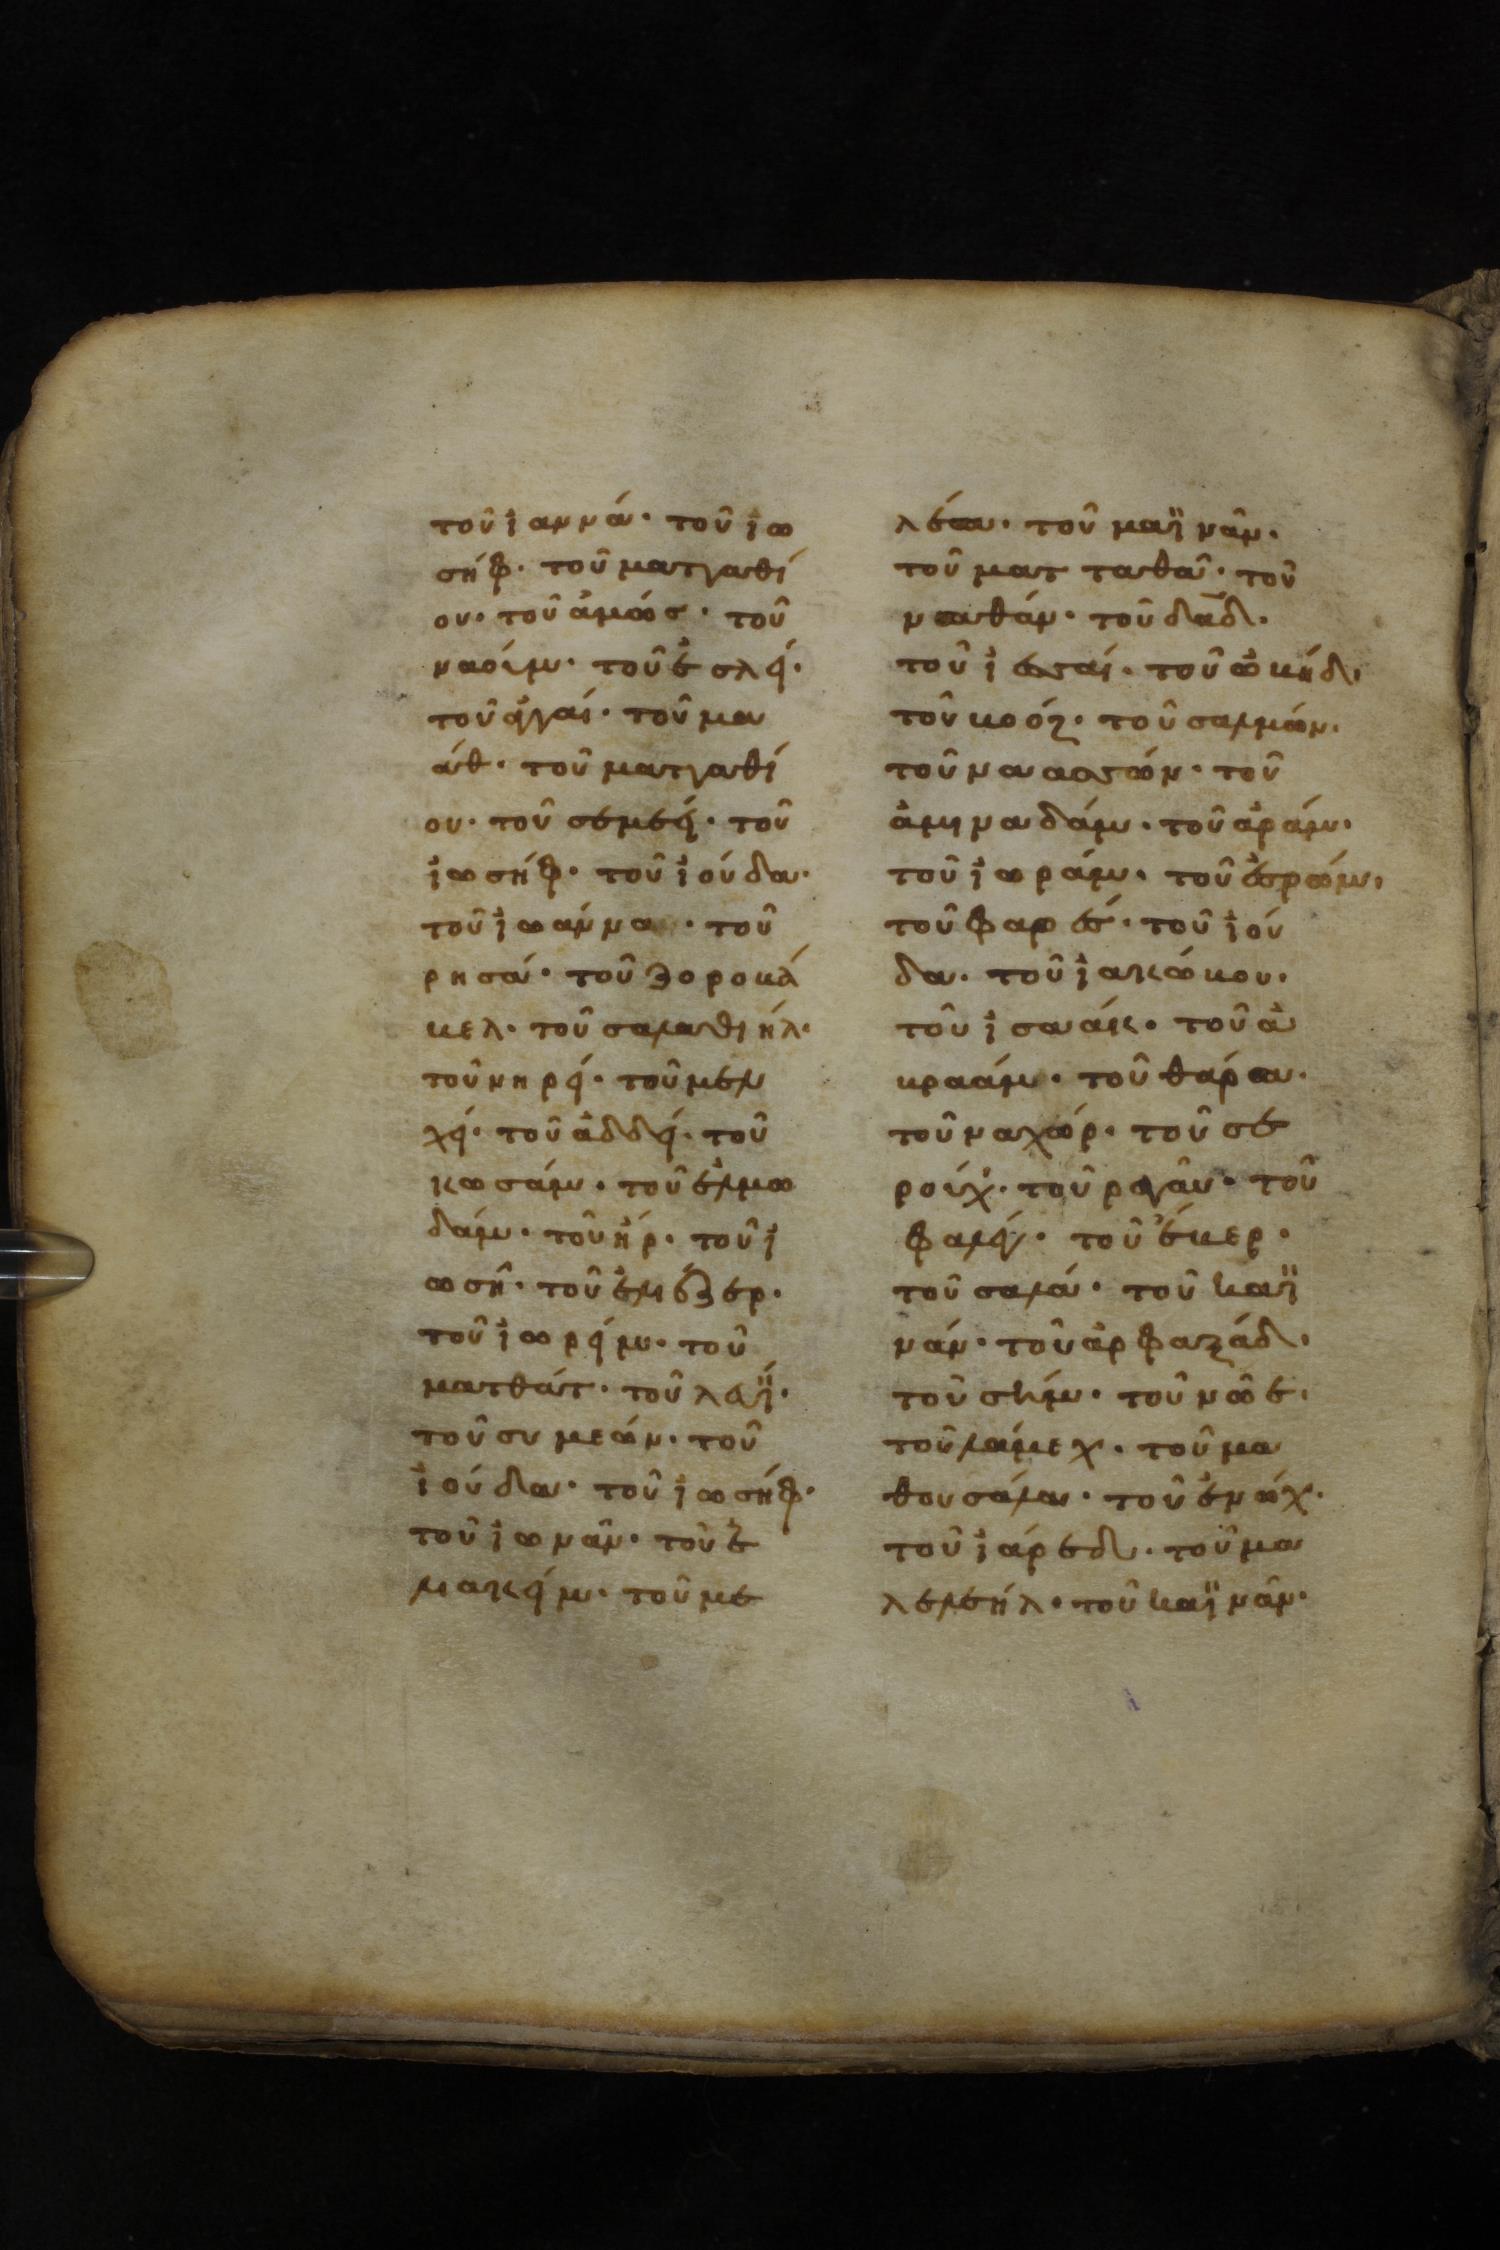 τοῦ ἰαννά· τοῦ ἰω
σήφ· τοῦ ματταθί
ου· τοῦ ἀμώς· τοῦ
ναούμ· τοῦ ἐσλεί·
τοῦ ἀγγαί· τοῦ μα
άθ· τοῦ ματταθί
ου· τοῦ σεμεεί· τοῦ
ἰωσήφ· τοῦ ἰούδα·
τοῦ ἰωάννα· τοῦ
ρησά· τοῦ ζοροβά
βελ· τοῦ σαλαθιήλ·
τοῦ νηρεί· τοῦ μελ
χεί· τοῦ ἀδδεί· τοῦ
κωσάμ· τοῦ ἐλμω
δάμ· τοῦ ἤρ· τοῦ ἰ
ωσῆ· τοῦ ἐλιέζερ·
τοῦ ἰωρείμ· τοῦ
ματθάτ· τοῦ λευΐ·
τοῦ συμεών· τοῦ
ἰούδα· τοῦ ἰωσήφ·
τοῦ ἰωνᾶν· τοῦ ἐ
λιακείμ· τοῦ με
λέα· τοῦ μαϊνᾶν·
τοῦ ματταθᾶ· τοῦ
ναθάν· τοῦ δᾱδ·
τοῦ ἰεσσαί· τοῦ ὠβήδ·
τοῦ βοόζ· τοῦ σαλμών·
τοῦ ναασσών· τοῦ
ἀμιναδάμ· τοῦ ἀράμ·
τοῦ ἰωράμ· τοῦ ἐσρώμ·
τοῦ φαρές· τοῦ ἰού
δα· τοῦ ἰακώβου·
τοῦ ἰσαάκ· τοῦ ἀ
βραάμ· τοῦ θάρα·
τοῦ ναχώρ· τοῦ σε
ρούχ· τοῦ ραγᾶν· τοῦ
φαλέγ· τοῦ ἔβερ·
τοῦ σαλά· τοῦ καϊ
νάν· τοῦ ἀρφαξάδ·
τοῦ σήμ· τοῦ νῶε·
τοῦ λάμεχ· τοῦ μα
θουσάλα· τοῦ ἐνώχ·
τοῦ ἰάρεδ· τοῦ μα
λελεήλ· τοῦ καϊνᾶν·